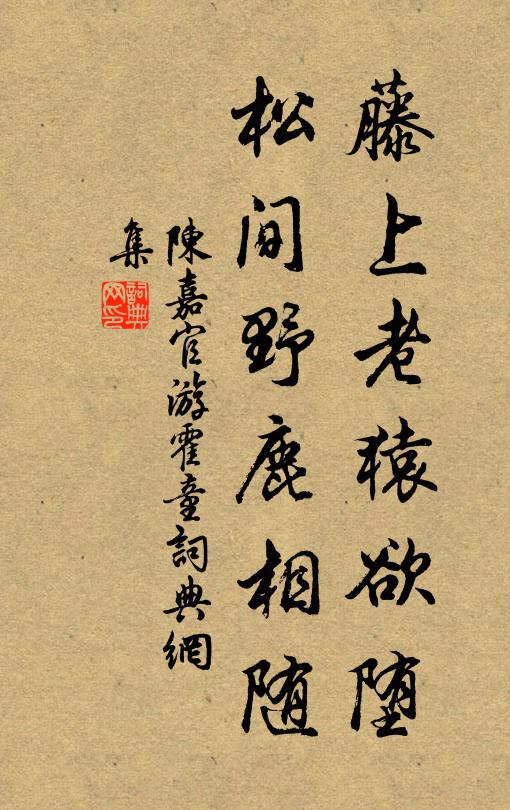 藤上老猿欲堕
松间野鹿相随
陳嘉官游霍童詞典網
集
詞典
网印